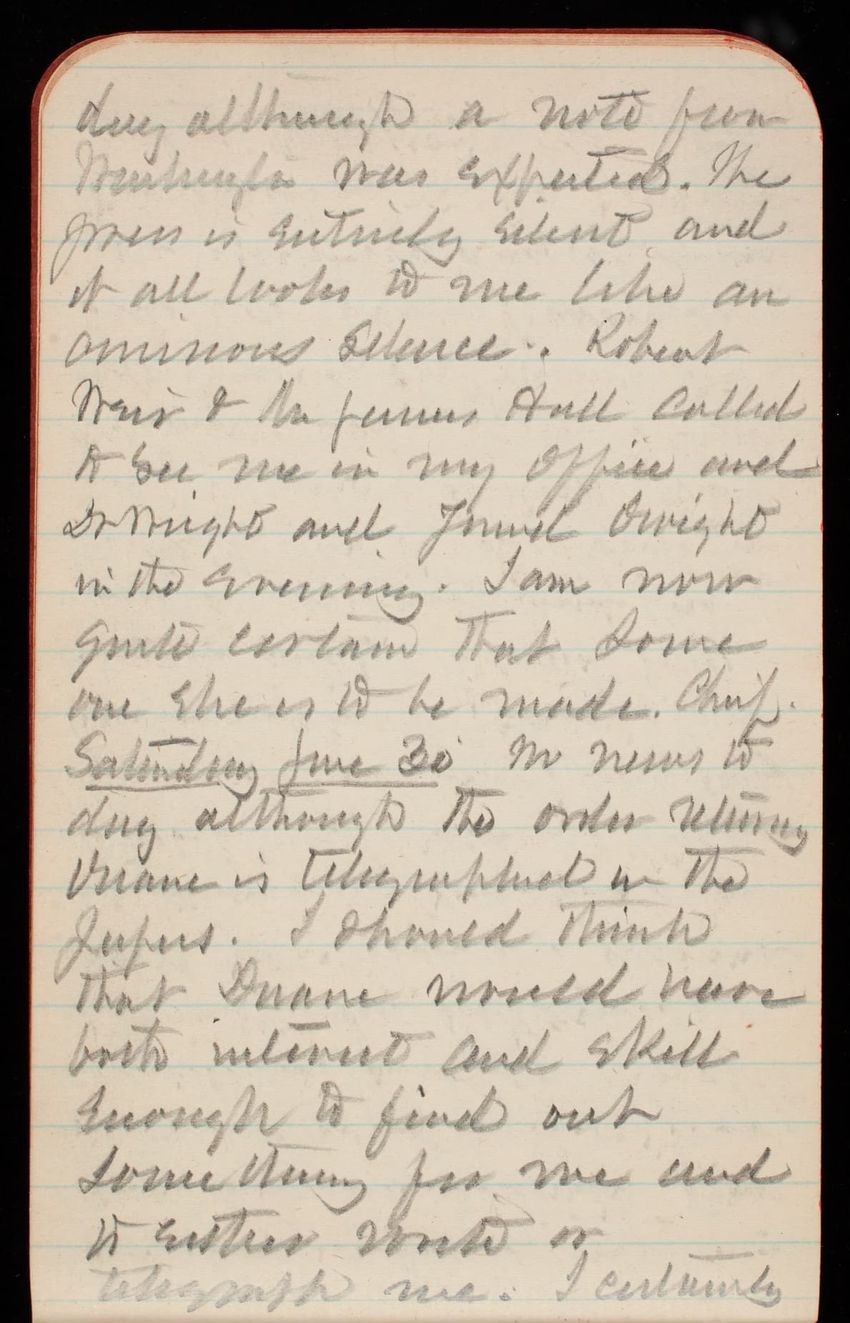 day although a note from
Washington was expected. The
press is entirely silent and
it all looks to me like an
ominous silence. Robert
Weir & the Hall called
to see me in my office and
Dr Wright and Dwight
in the evening. I am now
quite certain that some
one else is to be made. Chief.
Saturday June 30 No news to
day although the order retiring
Duane is telegraphed in the
papers. I should think
that Duane would have
both interest and skill
enough to find out
something for me and
to either write or
telegraph me. I certainly